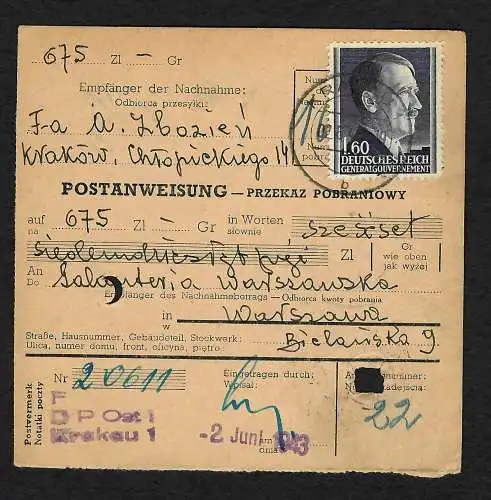 675 Zl — Gr
Empfänger der Nachnahme:
Odbiorca przesyłki:
Fa A. Zbozień
Kraków, Chłopickiego 14
1.60
DEUTSCHES REICH
GENERALGOUVERNEMENT
POSTANWEISUNG — PRZEKAZ POBRANIOWY
auf na 675 Zl — Gr in Worten słownie sześćset
siedemdziesiąt pięć Zl Gr wie oben jak wyżej
An Do Galanteria Warszawska
Empfänger des Nachnahmebetrags — Odbiorca kwoty pobrania
in w Warszawa
Straße, Hausnummer, Gebäudeteil, Stockwerk:
Ulica, numer domu, front, oficyna, piętro: Bielańska 9
Postvermerk
Notatki poczty
Nr 20611 Eingetragen durch:
Wpisał:
22
F
D P Ost 1
Krakau 1
-2 Juni 1943
am
dnia